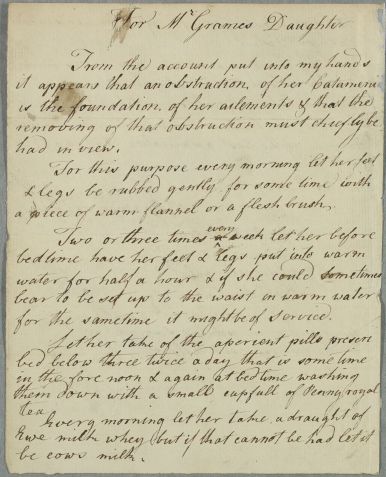 For Mr Grames Daughter
From the account put into my hands
it appears that an obstruction of her Catameni
is the foundation of her ailements & that the
removing of that obstruction must chiefly be
had in view.
For this purpose every morning let her feet
& Legs be rubbed gently for some time with
a piece of warm flannel or a flesh brush
Two or three times every week let her before
bedtime have her feet & Legs put into warm
water for half a hour & if she could sometimes
bear to be set up to the waist in warm water
for the sametime it might be of service.
Let her take of the aperient pills prescri
bed below three twice a day that is some time
in the fore noon & again at bedtime washing
them down with a small cupfull of Penny royal
tea
Every morning let her take a draught of
Ewe milk whey but if that cannot be had let it
be cows milk.